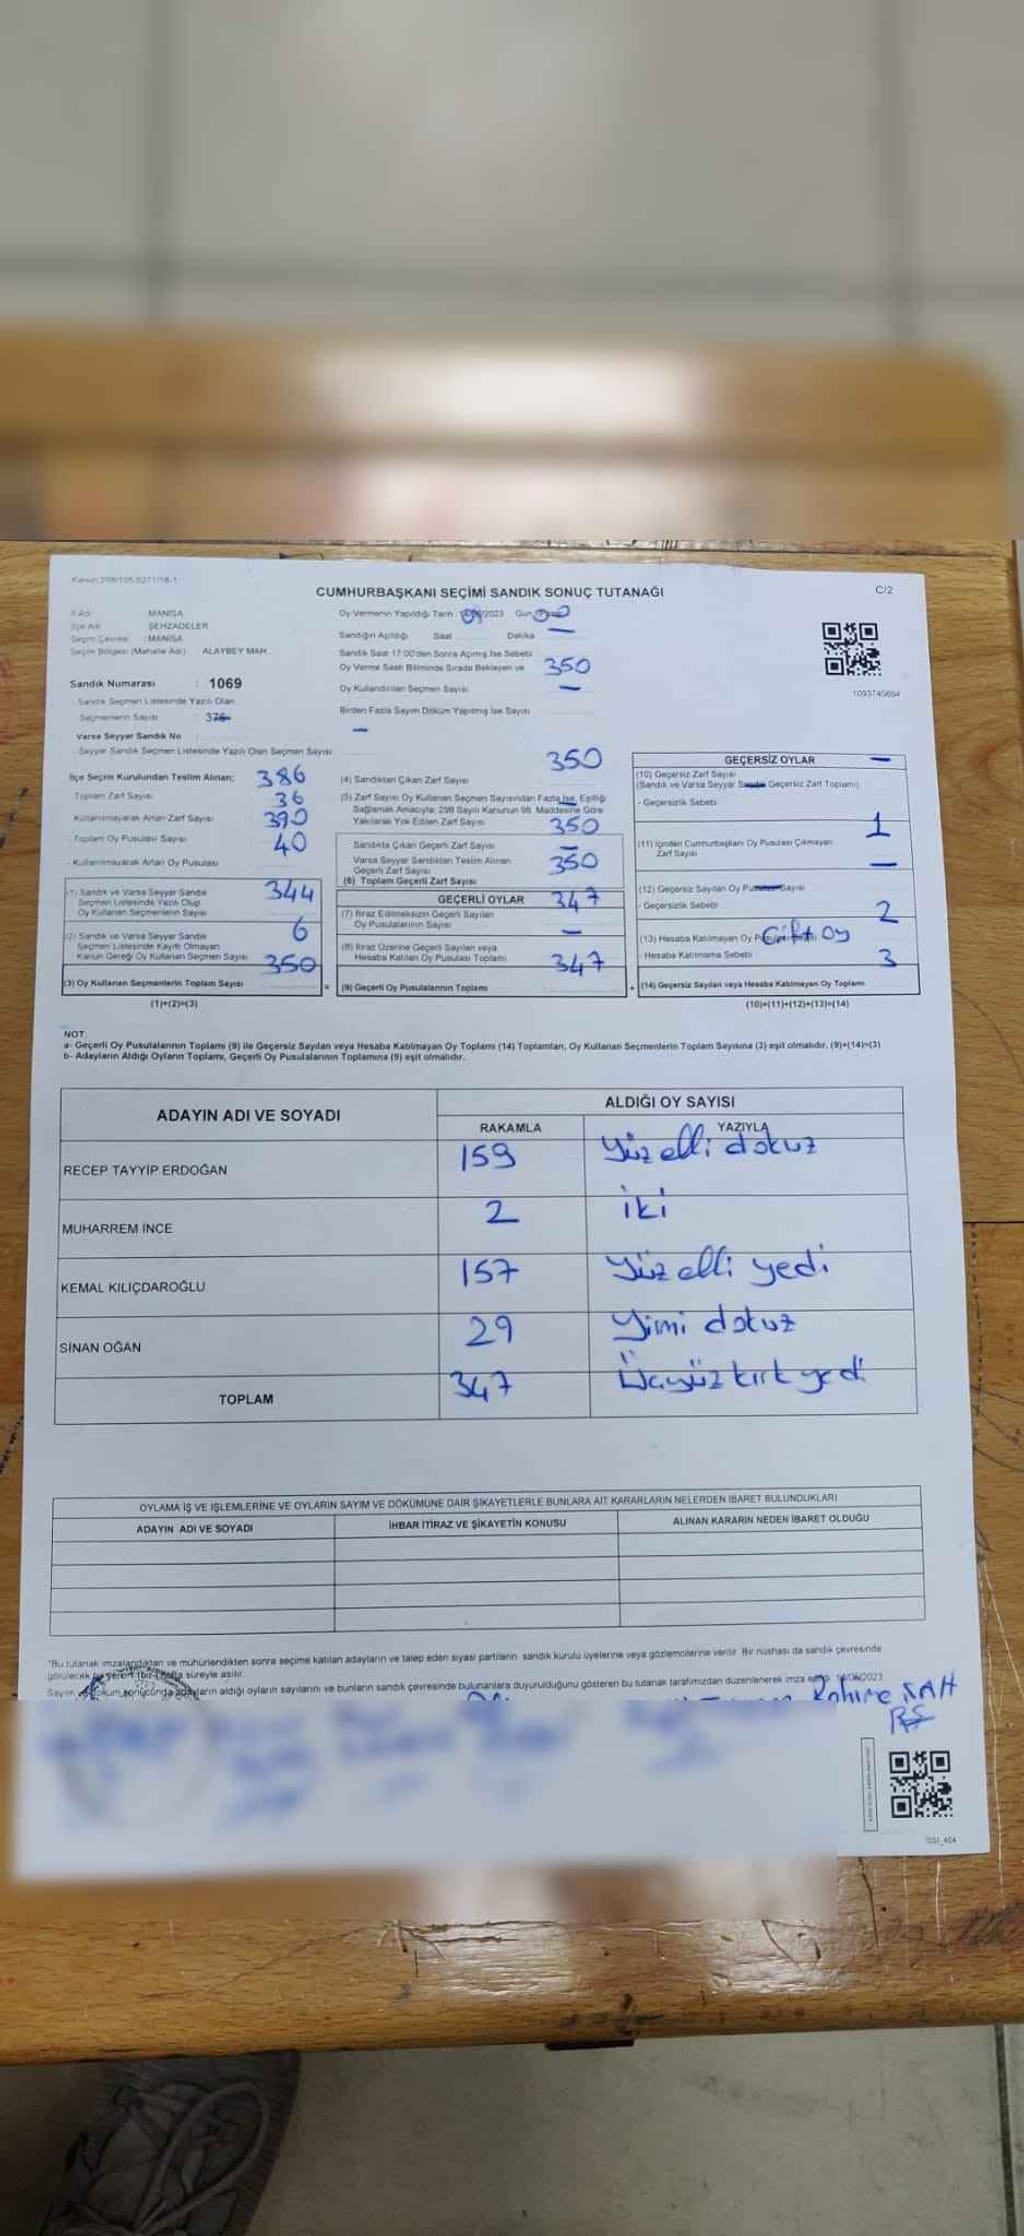 Kanun:298/105-6271/16-1
CUMHURBAŞKANI SEÇİMİ SANDIK SONUÇ TUTANAĞI
C/2
İl Adı : MANİSA
İlçe Adı : ŞEHZADELER
Seçim Çevresi : MANİSA
Seçim Bölgesi (Mahalle Adı) ALAYBEY MAH
Sandık Numarası : 1069
Sandık Seçmen Listesinde Yazılı Olan
Seçmenlerin Sayısı : 376
Varsa Seyyar Sandık No
- Seyyar Sandık Seçmen Listesinde Yazılı Olan Seçmen Sayısı
Oy Vermenin Yapıldığı Tarih /2023 Gün
Sandığın Açıldığı Saat Dakika
Sandık Saat 17:00'den Sonra Açılmış İse Sebebi
Oy Verme Saati Bitiminde Sırada Bekleyen ve 350
Oy Kullandırılan Seçmen Sayısı —
Birden Fazla Sayım Döküm Yapılmış İse Sayısı
—
1093745694
İlçe Seçim Kurulundan Teslim Alınan: 386
Toplam Zarf Sayısı 36
- Kullanılmayarak Artan Zarf Sayısı 390
- Toplam Oy Pusulası Sayısı 40
- Kullanılmayarak Artan Oy Pusulası
(1) Sandık ve Varsa Seyyar Sandık 344
Seçmen Listesinde Yazılı Olup
Oy Kullanan Seçmenlerin Sayısı
(2) Sandık ve Varsa Seyyar Sandık 6
Seçmen Listesinde Kayıtlı Olmayan
Kanun Gereği Oy Kullanan Seçmen Sayısı 350
(3) Oy Kullanan Seçmenlerin Toplam Sayısı =
(1)+(2)=(3)
350
(4) Sandıktan Çıkan Zarf Sayısı
(5) Zarf Sayısı Oy Kullanan Seçmen Sayısından Fazla İse, Eşitliği
Sağlamak Amacıyla; 298 Sayılı Kanunun 98. Maddesine Göre
Yakılarak Yok Edilen Zarf Sayısı 350
Sandıkta Çıkan Geçerli Zarf Sayısı —
Varsa Seyyar Sandıktan Teslim Alınan 350
Geçerli Zarf Sayısı
(6) Toplam Geçerli Zarf Sayısı
GEÇERLİ OYLAR 347
(7) İtiraz Edilmeksizin Geçerli Sayılan
Oy Pusulalarının Sayısı —
(8) İtiraz Üzerine Geçerli Sayılan veya
Hesaba Katılan Oy Pusulası Toplamı 347
(9) Geçerli Oy Pusulalarının Toplamı +
GEÇERSİZ OYLAR —
(10) Geçersiz Zarf Sayısı
(Sandık ve Varsa Seyyar Sandık Geçersiz Zarf Toplamı)
- Geçersizlik Sebebi
1
(11) İçinden Cumhurbaşkanı Oy Pusulası Çıkmayan
Zarf Sayısı —
(12) Geçersiz Sayılan Oy Pusulası Sayısı
- Geçersizlik Sebebi 2
(13) Hesaba Katılmayan Oy Pusulası Çift oy
- Hesaba Katılmama Sebebi 3
(14) Geçersiz Sayılan veya Hesaba Katılmayan Oy Toplamı
(10)+(11)+(12)+(13)=(14)
NOT:
a- Geçerli Oy Pusulalarının Toplamı (9) ile Geçersiz Sayılan veya Hesaba Katılmayan Oy Toplamı (14) Toplamları, Oy Kullanan Seçmenlerin Toplam Sayısına (3) eşit olmalıdır. (9)+(14)=(3)
b- Adayların Aldığı Oyların Toplamı, Geçerli Oy Pusulalarının Toplamına (9) eşit olmalıdır.
ADAYIN ADI VE SOYADI
ALDIĞI OY SAYISI
RAKAMLA YAZIYLA
RECEP TAYYİP ERDOĞAN 159 Yüz elli dokuz
MUHARREM İNCE 2 iki
KEMAL KILIÇDAROĞLU 157 Yüz elli yedi
SİNAN OĞAN 29 Yimi dokuz
TOPLAM 347 Üçyüz kırk yedi
OYLAMA İŞ VE İŞLEMLERİNE VE OYLARIN SAYIM VE DÖKÜMÜNE DAİR ŞİKAYETLERLE BUNLARA AİT KARARLARIN NELERDEN İBARET BULUNDUKLARI
ADAYIN ADI VE SOYADI İHBAR İTİRAZ VE ŞİKAYETİN KONUSU ALINAN KARARIN NEDEN İBARET OLDUĞU
*Bu tutanak imzalandıktan ve mühürlendikten sonra seçime katılan adayların ve talep eden siyasi partilerin sandık kurulu üyelerine veya gözlemcilerine verilir. Bir nüshası da sandık çevresinde
görülecek bir yere (bir) hafta süreyle asılır.
Sayım ve döküm sonucunda adayların aldığı oyların sayılarını ve bunların sandık çevresinde bulunanlara duyurulduğunu gösteren bu tutanak tarafımızdan düzenlenerek imza edildi. 14/05/2023
SSI_404